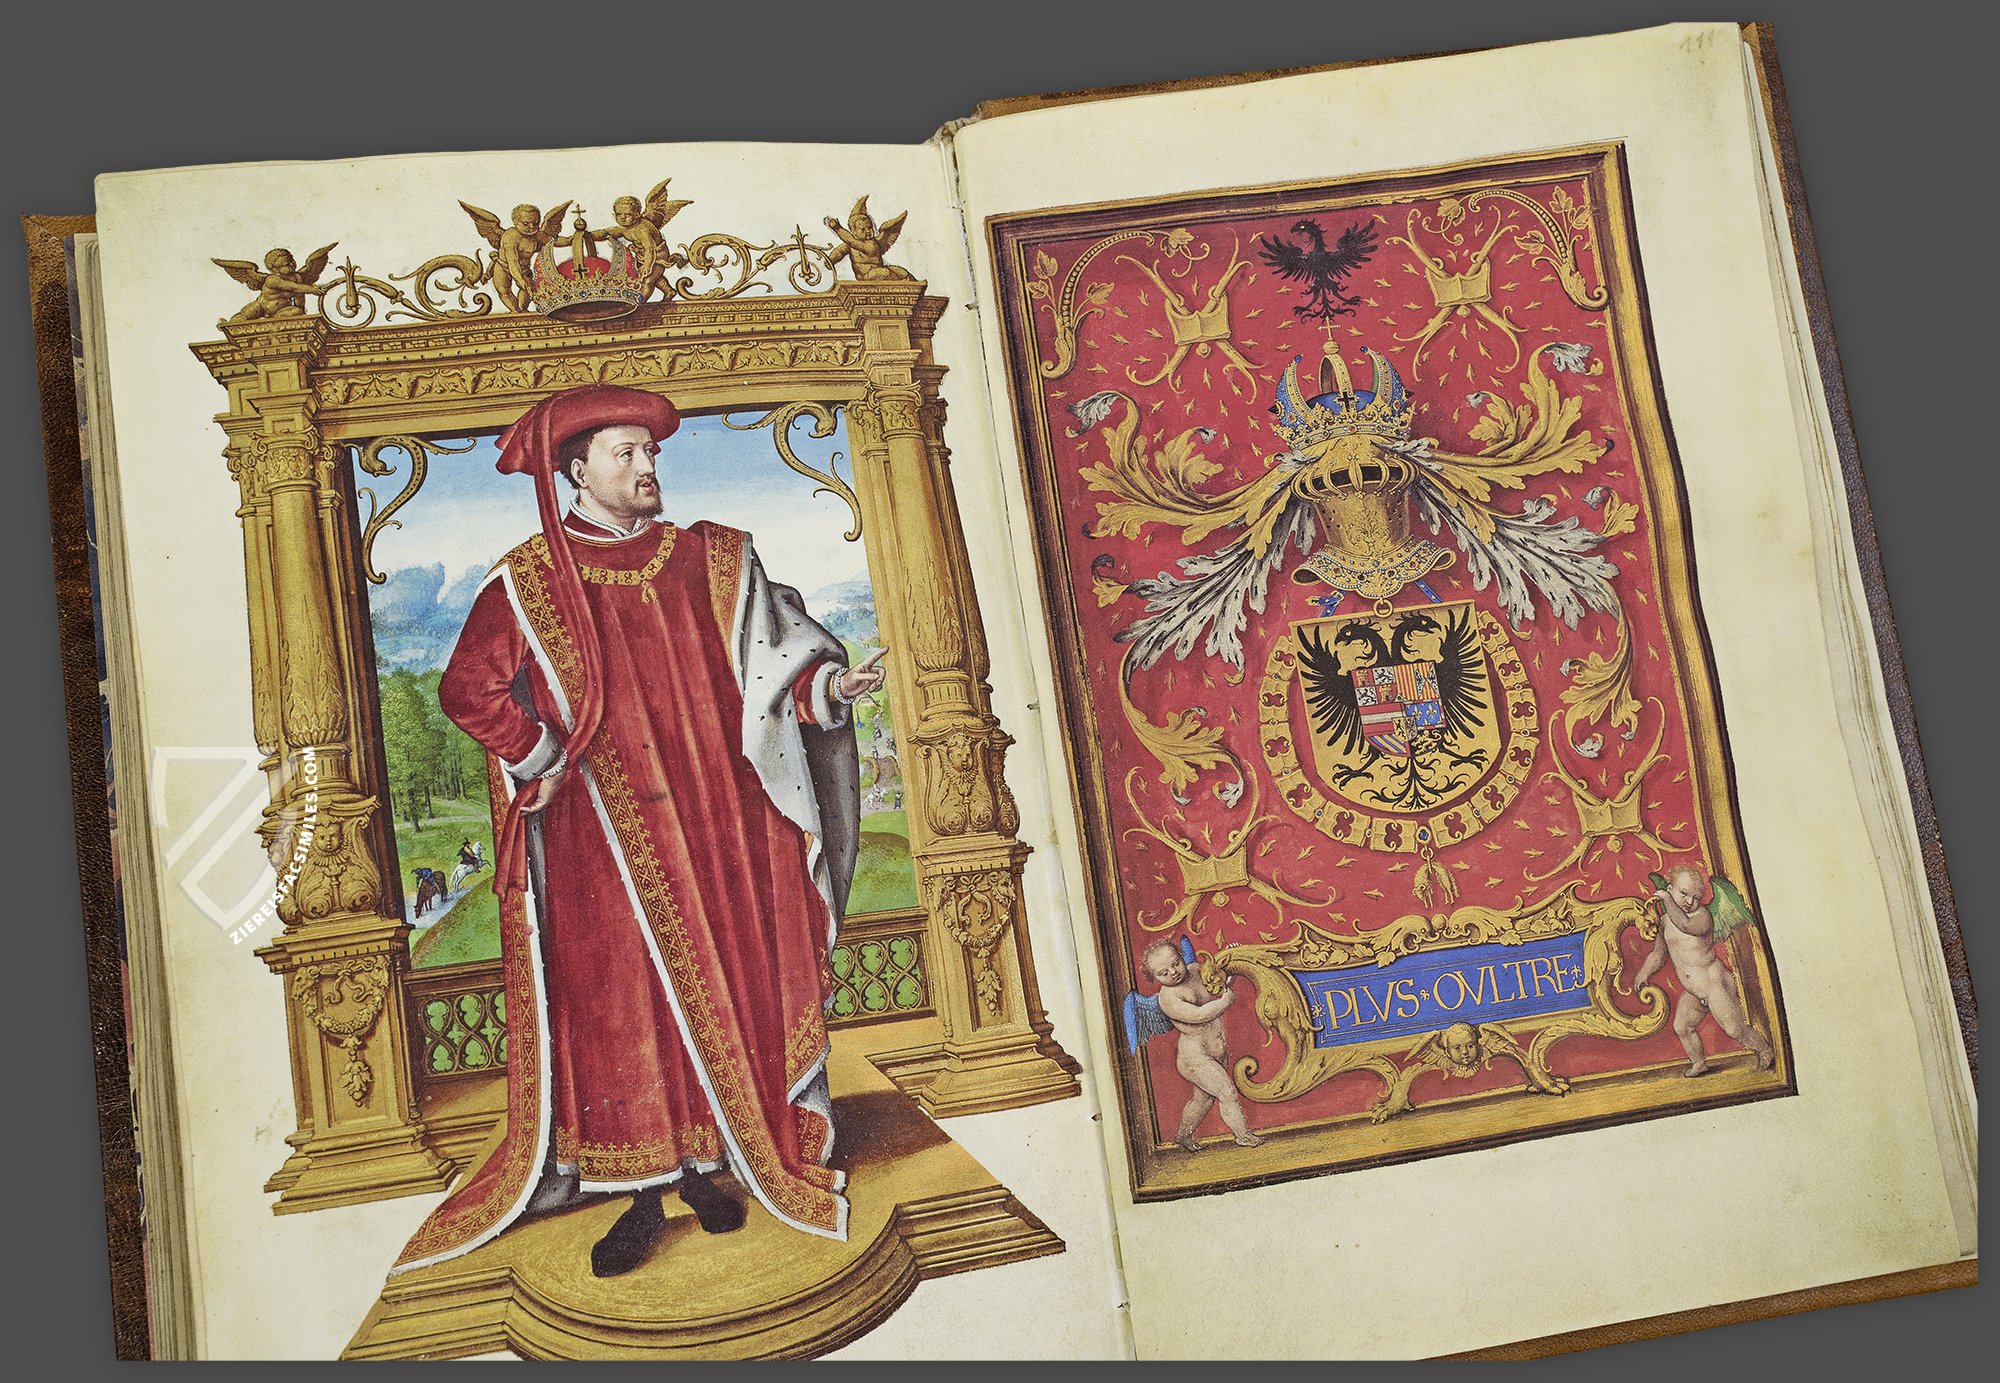 111
ZIEREISFACSIMILES.COM
PLVS OVLTRE